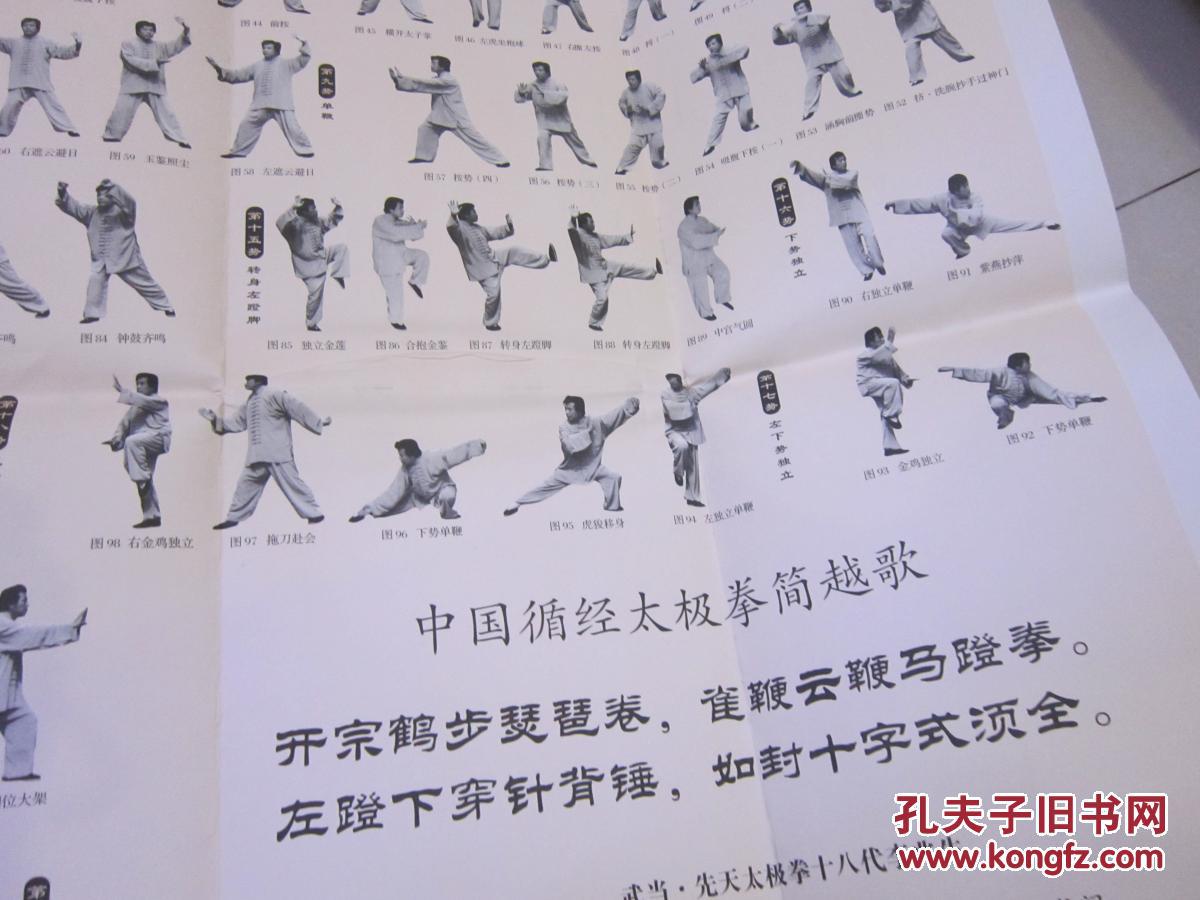 图44 前按
图45 横开太子掌
图46 左虎坐抱球
图47 右掤左按
图48 捋(一)
图49 捋(二)
右遮云避日
图59 玉鉴照尘
图58 左遮云避日
第九势 单鞭
图57 按势(四)
图56 按势(三)
图55 按势(二)
图54 吸腹下按(一)
图53 涵胸前掤势
图52 挤·洗腕抄手过神门
图84 钟鼓齐鸣
第十五势 转身左蹬脚
图85 独立金莲
图86 合抱金鉴
图87 转身左蹬脚
图88 转身左蹬脚
图89 中宫气圆
第十六势 下势独立
图90 右独立单鞭
图91 紫燕抄萍
第十八势
图98 右金鸡独立
图97 拖刀赴会
图96 下势单鞭
图95 虎貌移身
图94 左独立单鞭
第十七势 左下势独立
图93 金鸡独立
图92 下势单鞭
位大架
第
中国循经太极拳简越歌
开宗鹤步琵琶卷，雀鞭云鞭马蹬拳。
左蹬下穿针背锤，如封十字式须全。
武当·先天太极拳十八代
孔夫子旧书网
www.kongfz.com